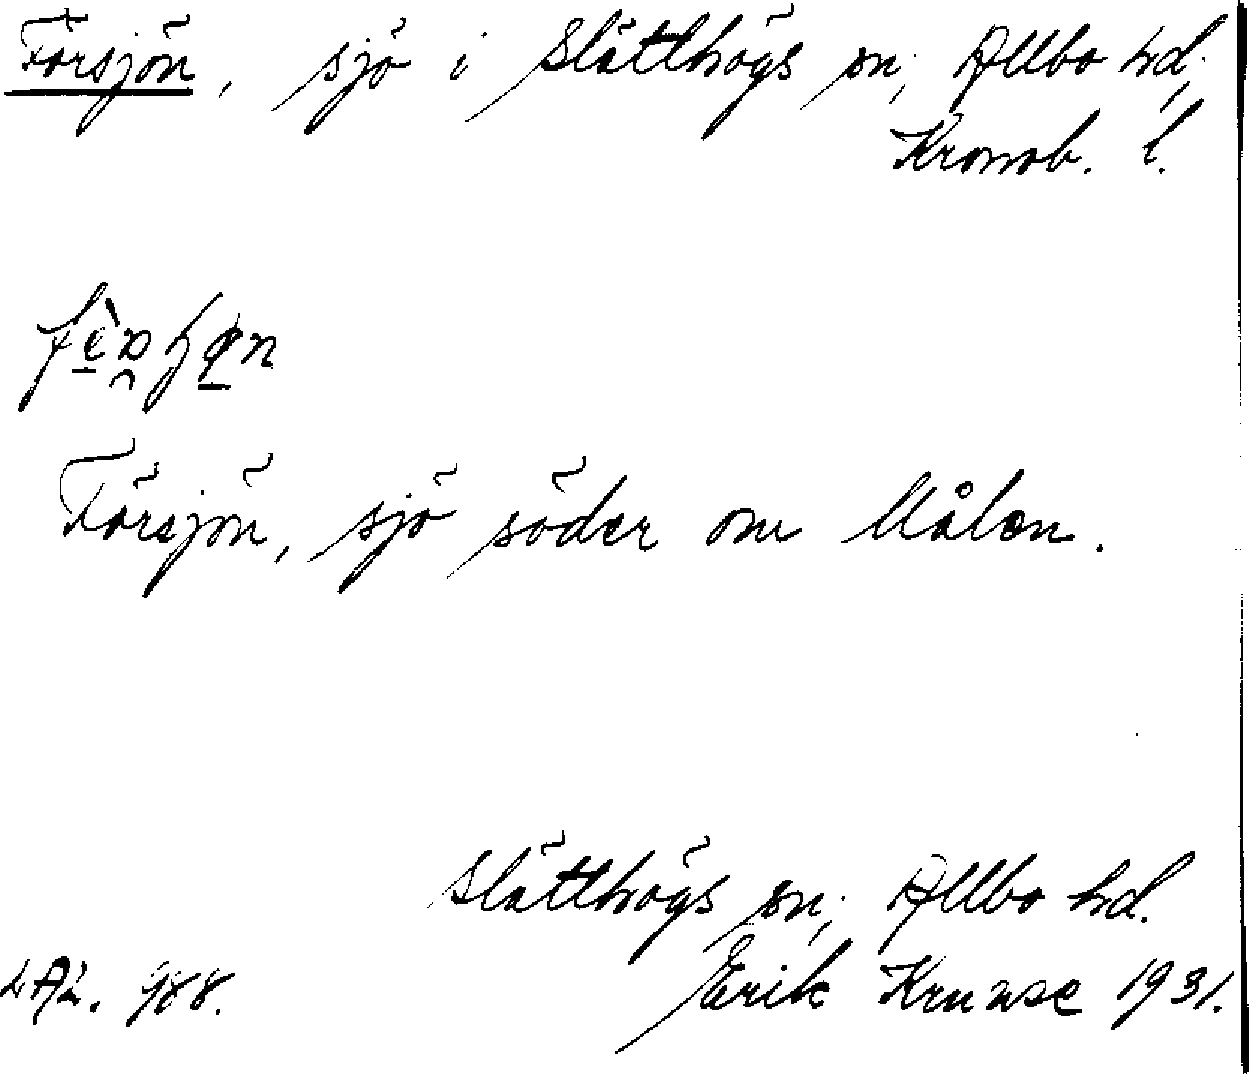 Försjön, sjö i Slätthögs sn; Allbo hd;
Kronob. l.
Försjön, sjö söder om Målen.
Slätthögs sn; Allbo hd.
LAL. 988. Erik Kruuse 1931.